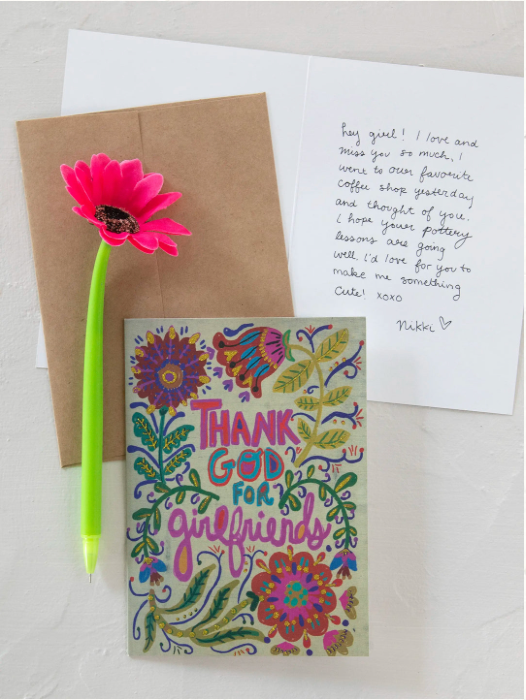 hey girl! I love and
miss you so much, I
went to our favorite
coffee shop yesterday
and thought of you.
I hope your pottery
lessons are going
well. I'd love for you to
make me something
cute! xoxo
Nikki ♡
THANK
GOD
FOR
girlfriends.